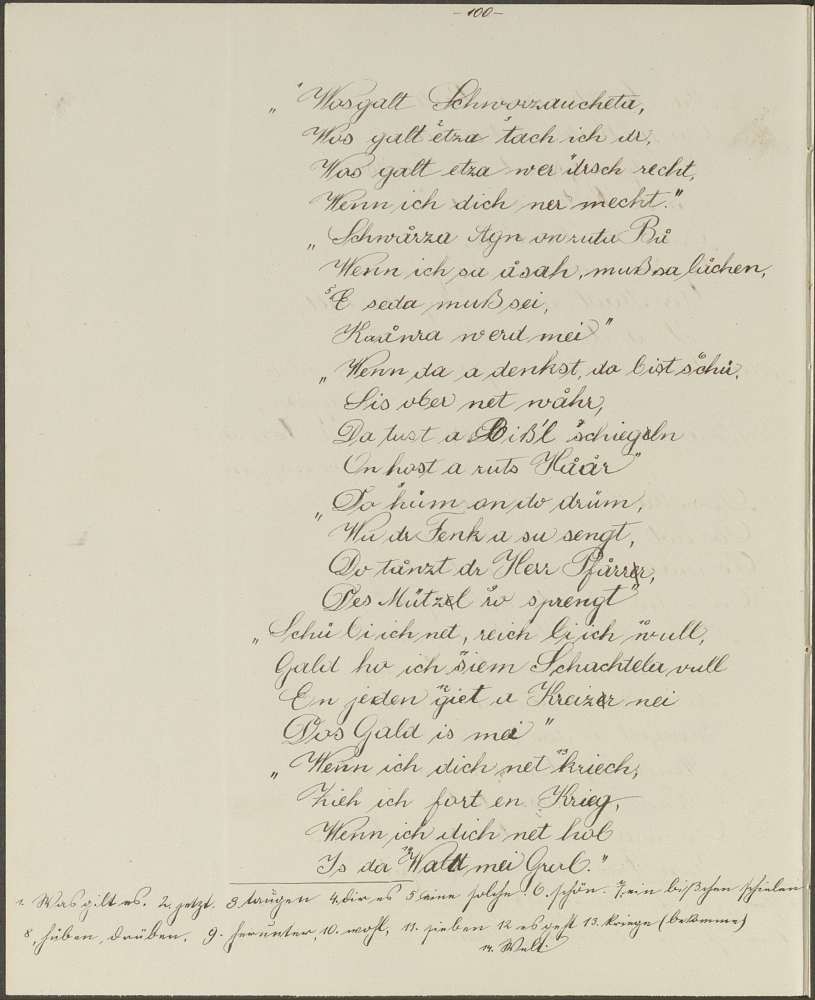 -100-
„¹Wosgalt Schworzaucheta,
Wos galt ²etza ³tach ich dr,
Wos galt etza wer ⁴drsch recht,
Wenn ich dich ner mecht."
„Schwårza Agn on ruta Bů
Wenn ich sa åsah, muß sa låchen,
⁵E seda muß sei,
Kaånra werd mei"
„Wenn da a denkst, da bist ⁶schü,
Sis ober net wåhr,
Da tust a Biß'l ⁷schiegeln
On host a ruts Håår"
„Do ⁸hüm on do drüm,
Wu dr Fenk a su sengt,
Do tånzt dr Herr Pfårrer,
Des Mützel ⁹ro sprengt"
„Schü bi ich net, reich bi ich ¹⁰wull,
Gald ho ich ¹¹siem Schachteln vull
En jeden ¹²giet a Kreizer nei
Dos Gald is mei"
„Wenn ich dich net ¹³kriech,
Zieh ich fort en Krieg,
Wenn ich dich net hob
Is da ¹⁴Walt mei Grob."
1. Was gilt es. 2. jetzt. 3 taugen 4. dir es 5 eine solche. 6. schön. 7. ein bißchen schielen
8. hüben, drüben. 9. herunter, 10. wohl, 11. sieben 12 es geht 13. kriege (bekomme)
14. Welt